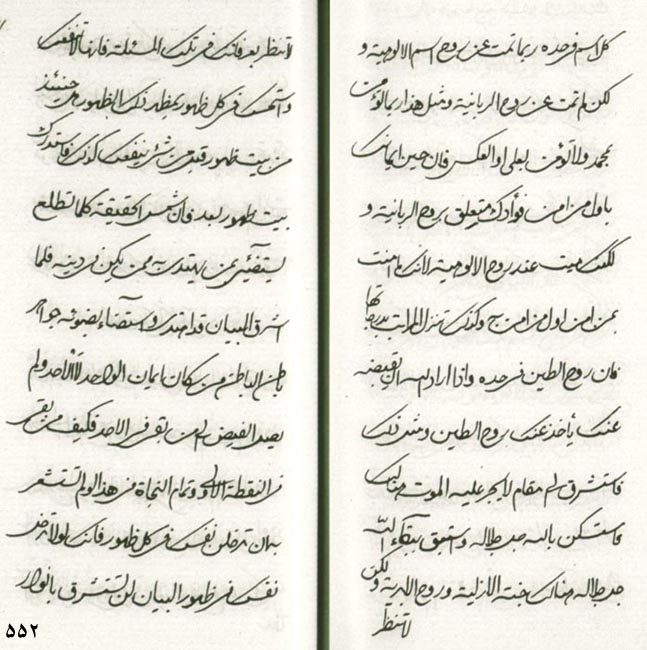 كل اسم فى حده ربما تمت عن روح اسم الالوهية و
لكن لم تمت عن روح الربانية ومثل هذا ربما تؤمن
بمحمد ولا تؤمن بعلى او بالعكس فان حين ايمانك
باول من امن فؤادك متعلق بروح الربانية و
لكنك ميت عند روح الالوهية لانك ما امنت
بمن امن اول من امن به وكذلك تنزل المراتب بدرجاتها
فان روح الطين فى حده واذا اراد الله ان يقبضه
عنك يأخذ عنك روح الطين ومثل ذلك
فاستشرق لم مقام لا يجر عليه الموت هنالك
فاستمسكن بالله جل جلاله واستبق ببقاء الله
جل جلاله هنالك جنة الازلية وروح الابدية ولكن
لا تنظر
لا تنظر بعرفانك فى تلك المسئلة فانها لا تنفعك
واستمسك فى كل ظهور بمظهر ذلك الظهور من حينئذ
من بيت ظهور قبله من شئ ينفعك كذلك فاستدرك
بيت ظهور بعد فان شمس الحقيقة كلما تطلع
ليستضيئ بمن يهتدى به ممن يكن فى دينه فلما
اشرق البيان قد اهتدى واستضاء بضوئه جواهر
باطن الباطن من كان ايمان الواحد لا الاحد ولم
يصل الفيض الى من بقى فى الاحد فكيف من بقى
من النقطة الاولى وتمام النجاة فى هذا لو لم تستشعر
بان تدخلن نفسك فى كل ظهور فانك لو لا تدخل
نفسك فى ظهور البيان لن تستشرق بانوار
٥٥٢